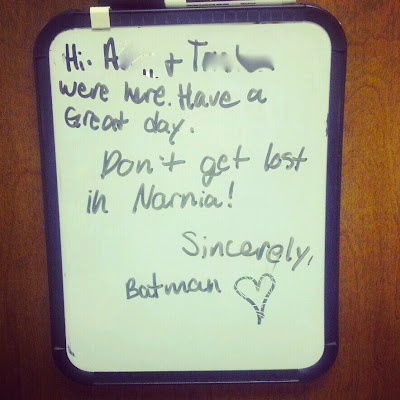 Hi. + 
were here. Have a
Great day.
Don't get lost
in Narnia!
Sincerely,
Batman